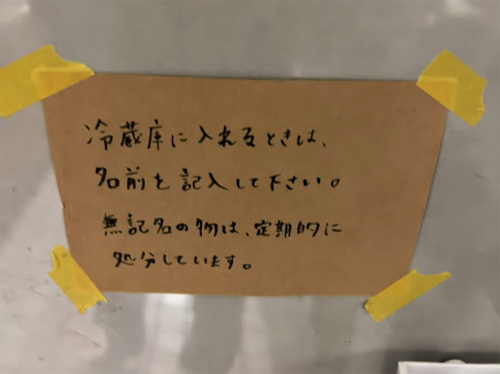 冷蔵庫に入れるときは、
名前を記入して下さい。
無記名の物は、定期的に
処分しています。